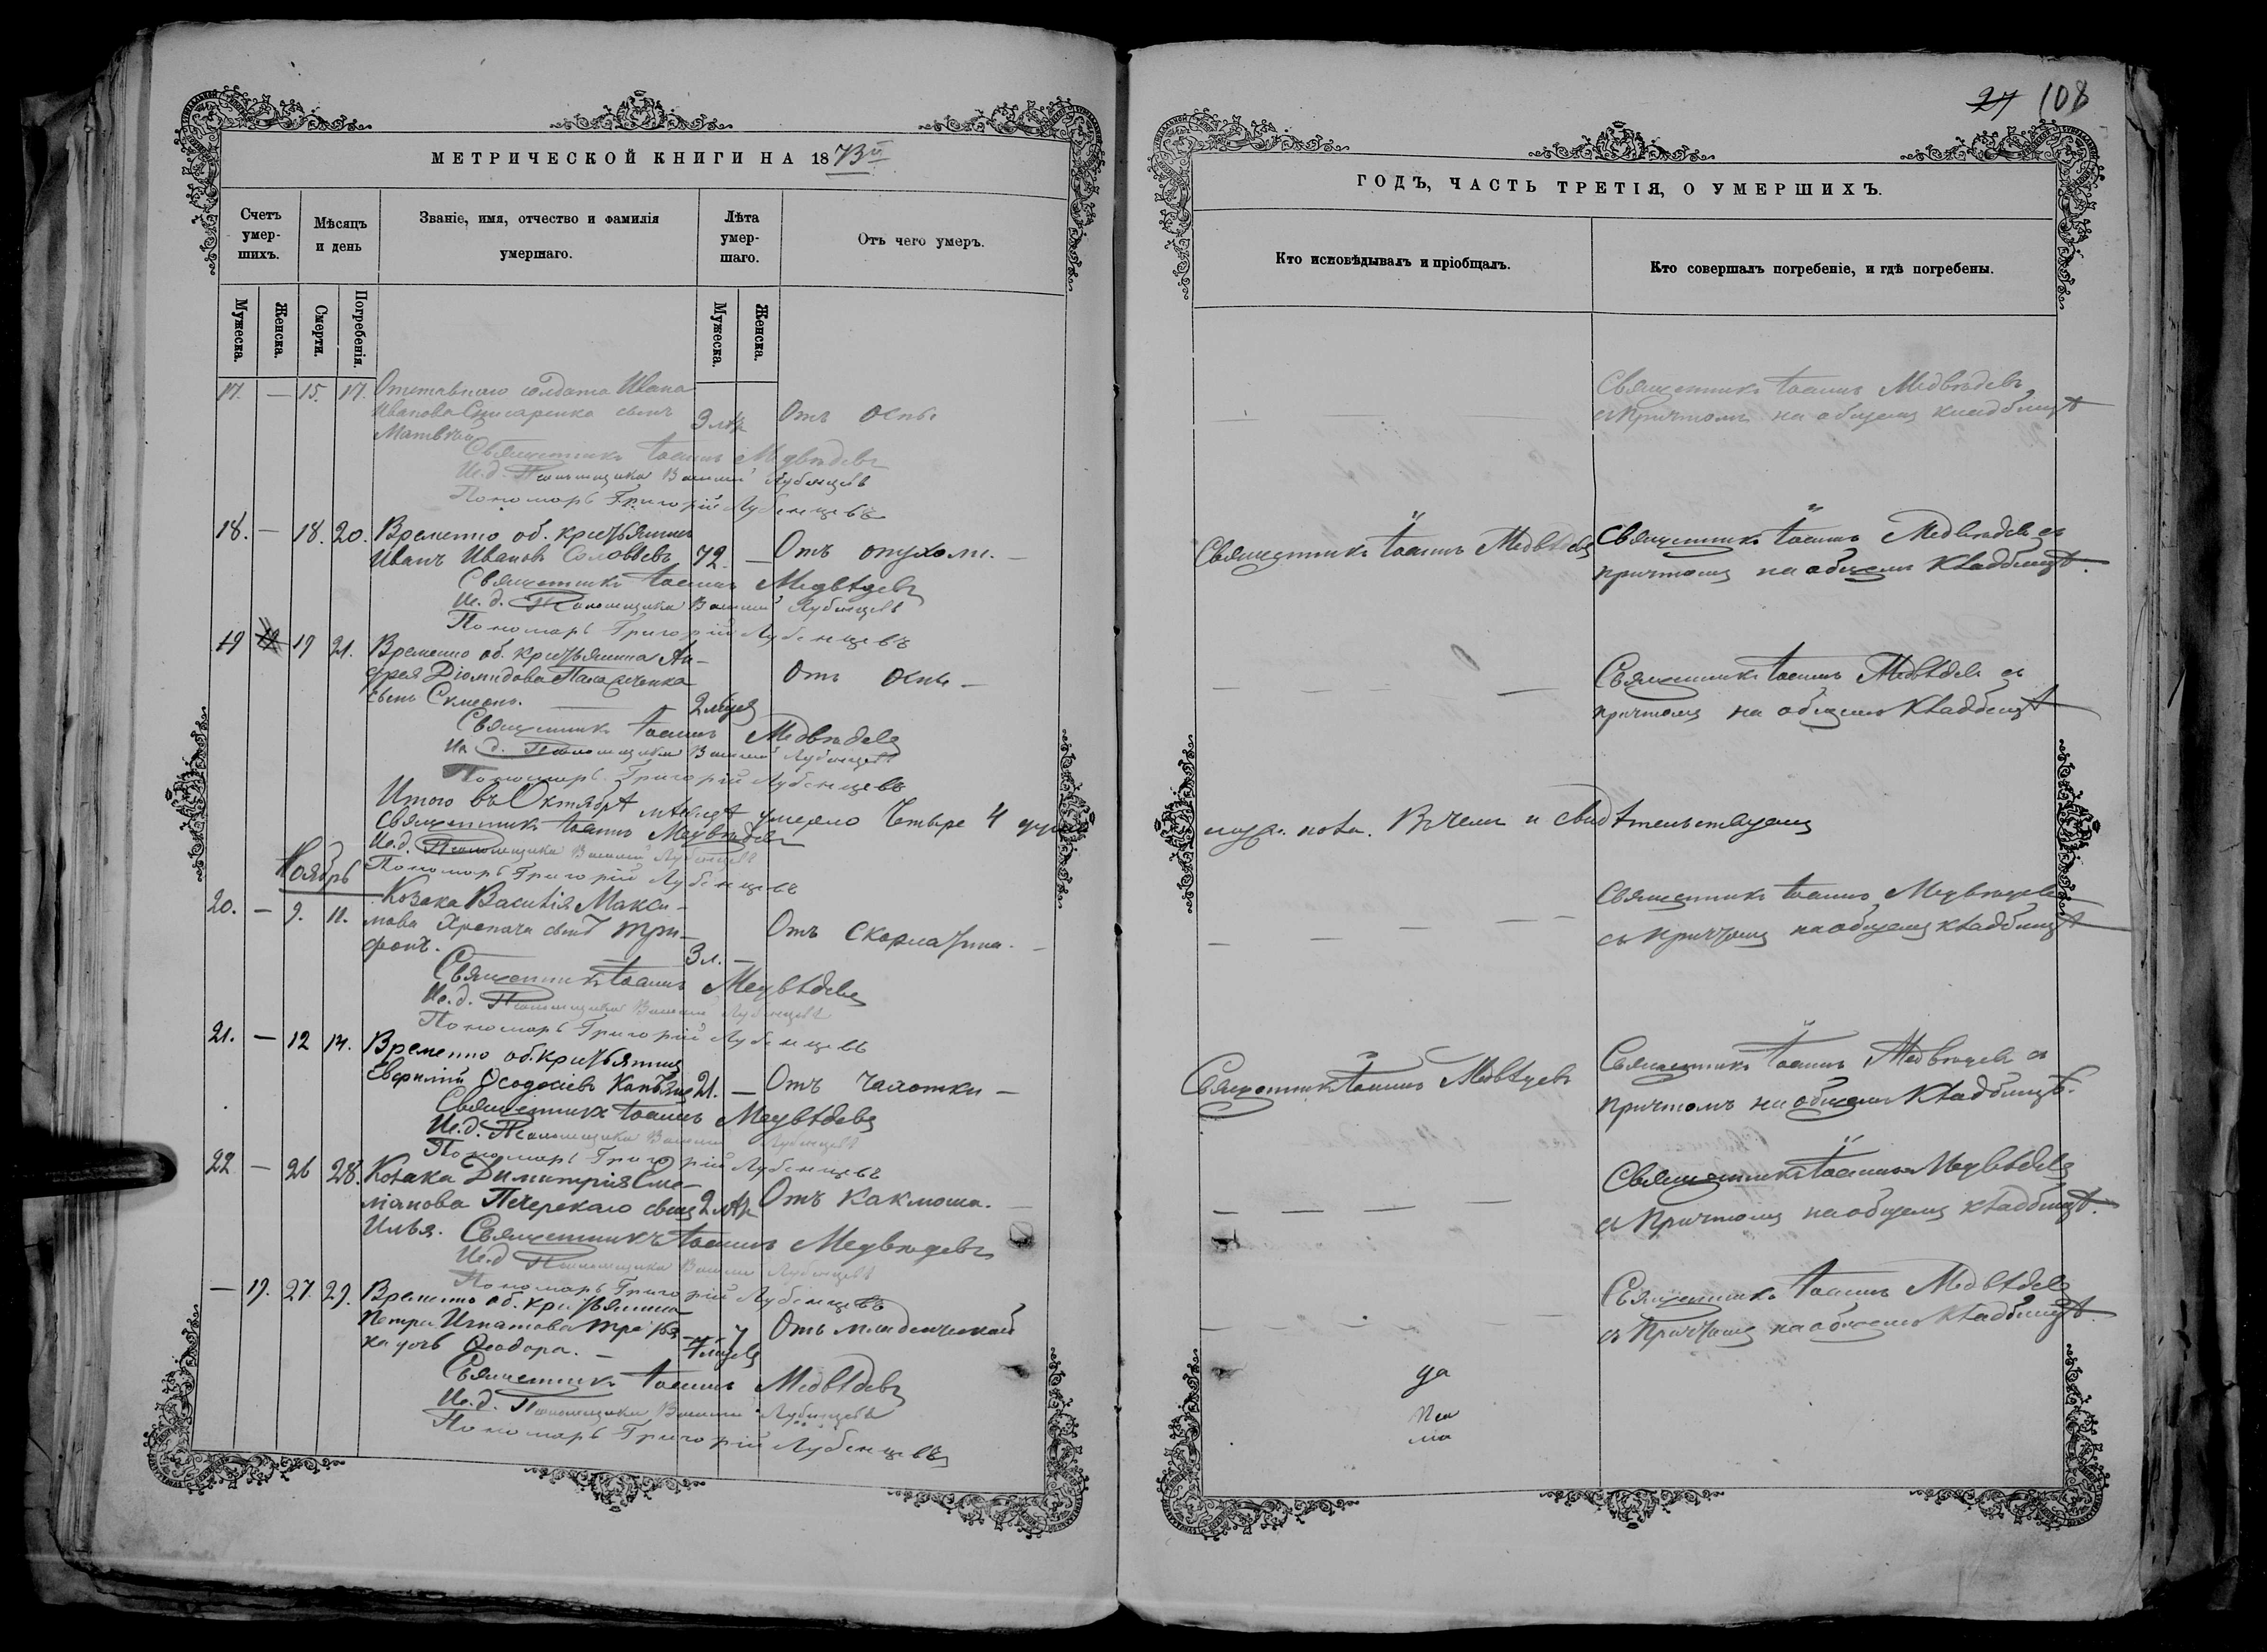 27 108
МЕТРИЧЕСКОЙ КНИГИ НА 1873й
ГОДЪ, ЧАСТЬ ТРЕТІЯ, О УМЕРШИХЪ.
Счетъ умер-шихъ.
Мѣсяцъ и день
Званіе, имя, отчество и фамилія умершаго.
Лѣта умер-шаго.
Отъ чего умеръ.
Кто исповѣдывалъ и пріобщалъ.
Кто совершалъ погребеніе, и гдѣ погребены.
Мужеска. Женска. Смерти. Погребенія. Мужеска. Женска.
17. — 15. 17. Отставного солдата Ивана
Иванова сынъ 3 лѣт Отъ оспы
Матвѣй
Священникъ Іоаннъ Медвѣдевъ
съ причтомъ на общемъ кладбищѣ
Священникъ Іоаннъ Медвѣдевъ
И.д. Псаломщика Василій Лубенцевъ
Пономарь Григорій Лубенцевъ
18. — 18. 20. Временно об. крестьянинъ
Иванъ Ивановъ Соловьевъ 72. — Отъ опухоли. —
Священникъ Іоаннъ Медвѣдевъ
Священникъ Іоаннъ Медвѣдевъ съ
причтомъ на общемъ кладбищѣ.
Священникъ Іоаннъ Медвѣдевъ
И.д. Псаломщика Василій Лубенцевъ
Пономарь Григорій Лубенцевъ
19 19 21. Временно об. крестьянина Ан-
дрея Діомидова сынъ Симеонъ. 2 мѣсяц Отъ оспы —
Священникъ Іоаннъ Медвѣдевъ съ
причтомъ на общемъ кладбищѣ
Священникъ Іоаннъ Медвѣдевъ
И.д. Псаломщика Василій Лубенцевъ
Пономарь Григорій Лубенцевъ
Итого въ Октябрѣ мѣсяцѣ умерло четыре 4 души
муж. пола. В чемъ и свидѣтельствуемъ
Священникъ Іоаннъ Медвѣдевъ
И.д. Псаломщика Василій Лубенцевъ
Пономарь Григорій Лубенцевъ
Ноябрь
20. — 9. 11. Козака Василія Макси-
мова Хропача сынъ Три-
фонъ. 3 л. — Отъ скорлатины. —
Священникъ Іоаннъ Медвѣдевъ
съ причтомъ на общемъ кладбищѣ
Священникъ Іоаннъ Медвѣдевъ
И.д. Псаломщика Василій Лубенцевъ
Пономарь Григорій Лубенцевъ
21. — 12 14. Временно об. крестьянинъ
Евфимій Ѳеодосіевъ 21. — Отъ чахотки —
Священникъ Іоаннъ Медвѣдевъ
Священникъ Іоаннъ Медвѣдевъ съ
причтомъ на общемъ кладбищѣ.
Священникъ Іоаннъ Медвѣдевъ
И.д. Псаломщика Василій Лубенцевъ
Пономарь Григорій Лубенцевъ
22 — 26 28. Козака Димитрія
Печерскаго сынъ 2 лѣт Отъ какмоша.
Илья.
Священникъ Іоаннъ Медвѣдевъ
съ причтомъ на общемъ кладбищѣ.
Священникъ Іоаннъ Медвѣдевъ
И.д. Псаломщика Василій Лубенцевъ
Пономарь Григорій Лубенцевъ
— 19. 27. 29. Временно об. крестьянина
Петра Игнатова
дочь Ѳеодора. — 7 мѣсяц Отъ младенческой
Священникъ Іоаннъ Медвѣдевъ
съ причтомъ на общемъ кладбищѣ.
Священникъ Іоаннъ Медвѣдевъ
И.д. Псаломщика Василій Лубенцевъ
Пономарь Григорій Лубенцевъ